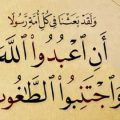 وَلَقَدْ بَعَثْنَا فِي كُلِّ أُمَّةٍ رَسُولًا
أَنِ اعْبُدُوا اللَّهَ
وَاجْتَنِبُوا الطَّاغُوتَ